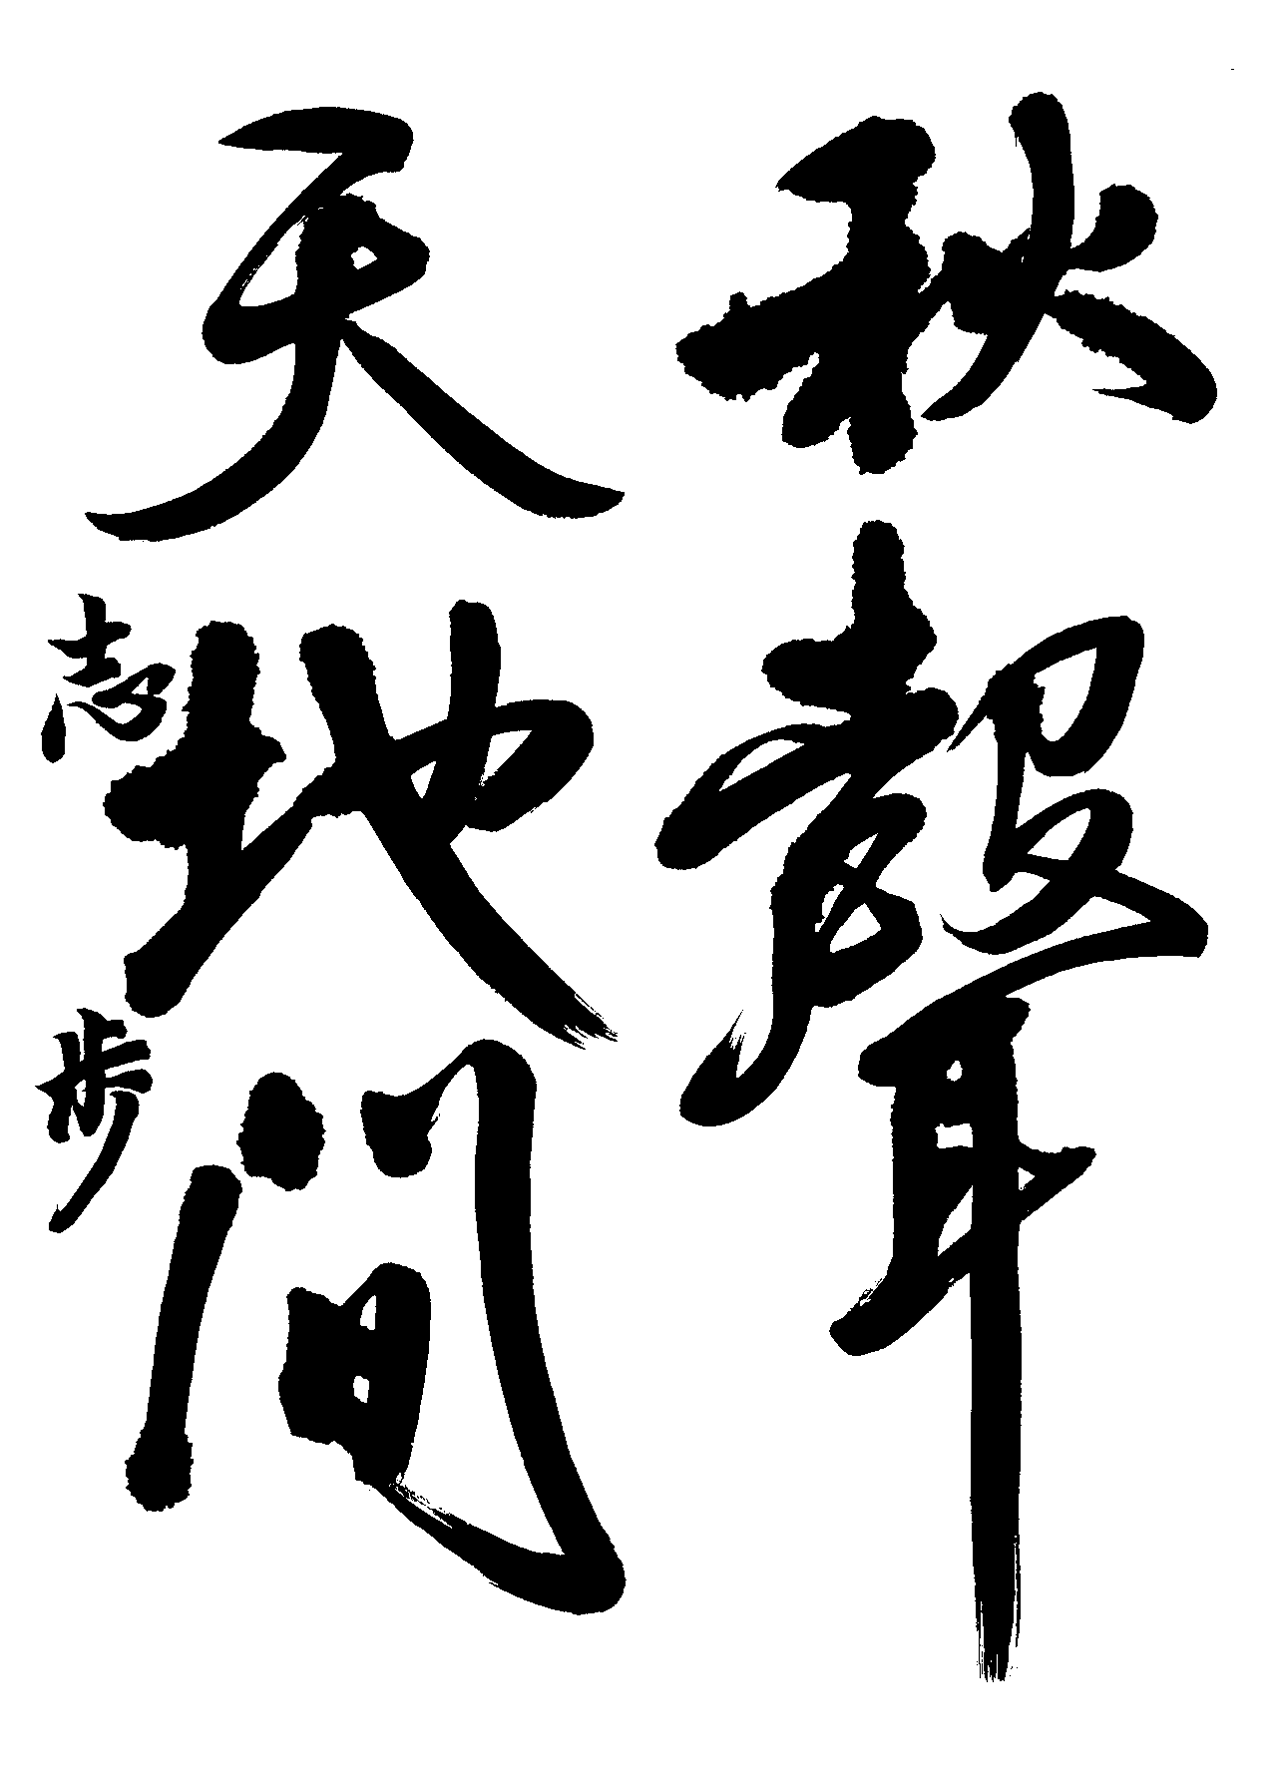 秋聲
天地間
志歩